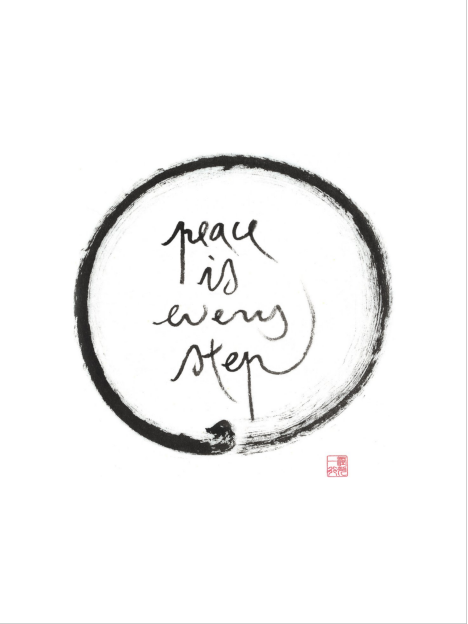 peace
is
every
step